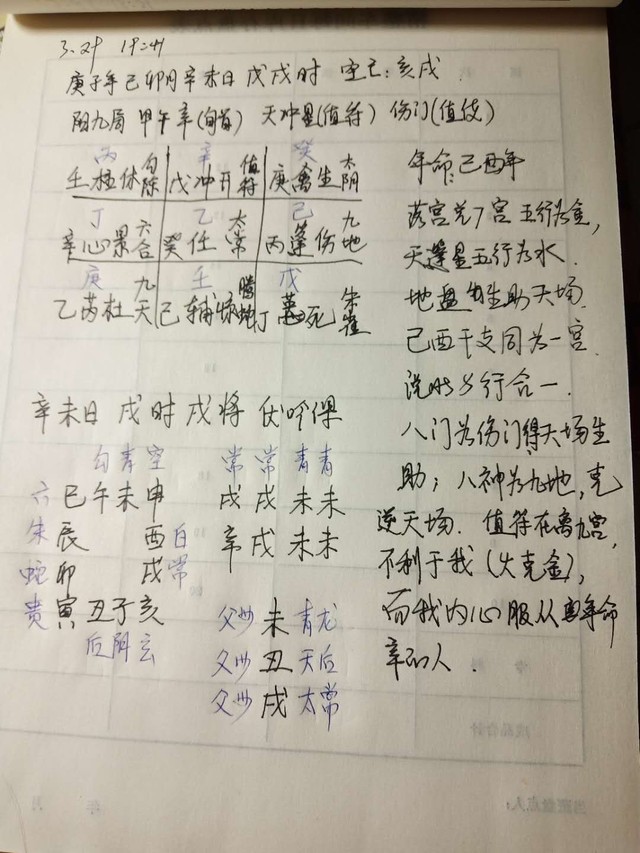 3.29 19:41
庚子年 己卯月 辛未日 戊戌时 空亡:亥戌.
阳九局 甲午辛(旬首) 天冲星(值符) 伤门(值使)
丙 辛 癸
壬柱休勾陈 戊冲开值符 庚禽生太阴
丁 乙 己
辛心景六合 癸任太常 丙蓬伤九地
庚 壬 戊
乙芮杜九天 己辅惊腾蛇 丁英死朱雀
年命:己酉年
落宫兑7宫 五行为金,
天蓬星五行为水.
地盘生助天场.
己酉干支同为一宫.
说明与行合一.
八门为伤门,得天场生
助;八神为九地,克
逆天场. 值符在离九宫,
不利于我(火克金),
而我内心服从年命
辛的人.
辛未日 戌时 戌将 伏吟课
勾青空 常常青青
六巳午未申 戌戌未未
朱辰 酉白 辛戌未未
蛇卯 戌常
贵寅丑子亥
后阴玄
父妙 未 青龙
父妙 丑 天后
父妙 戌 太常